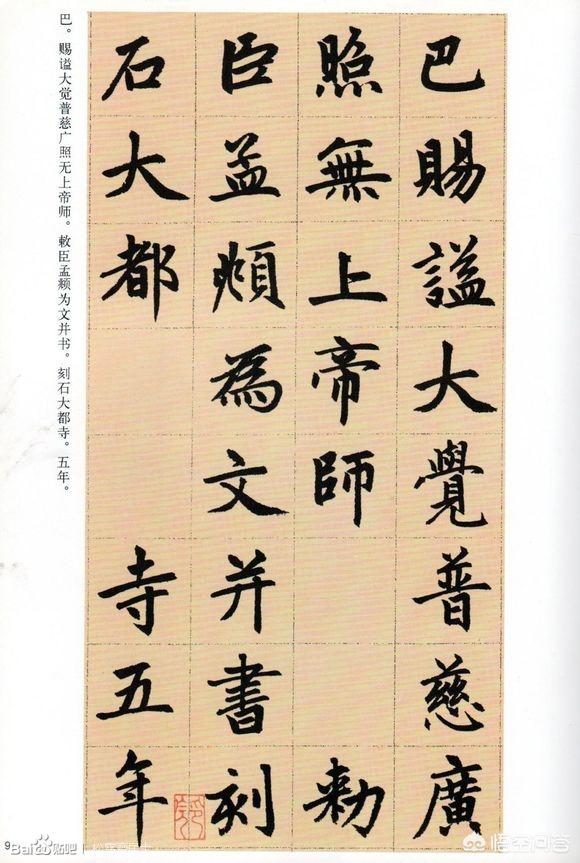 巴賜謚大覺普慈廣
照無上帝師 勅
臣孟頫為文并書刻
石大都 寺五年
巴。赐谥大觉普慈广照无上帝师。敕臣孟頫为文并书。刻石大都寺。五年。
9
Bai贴吧
悟空问答